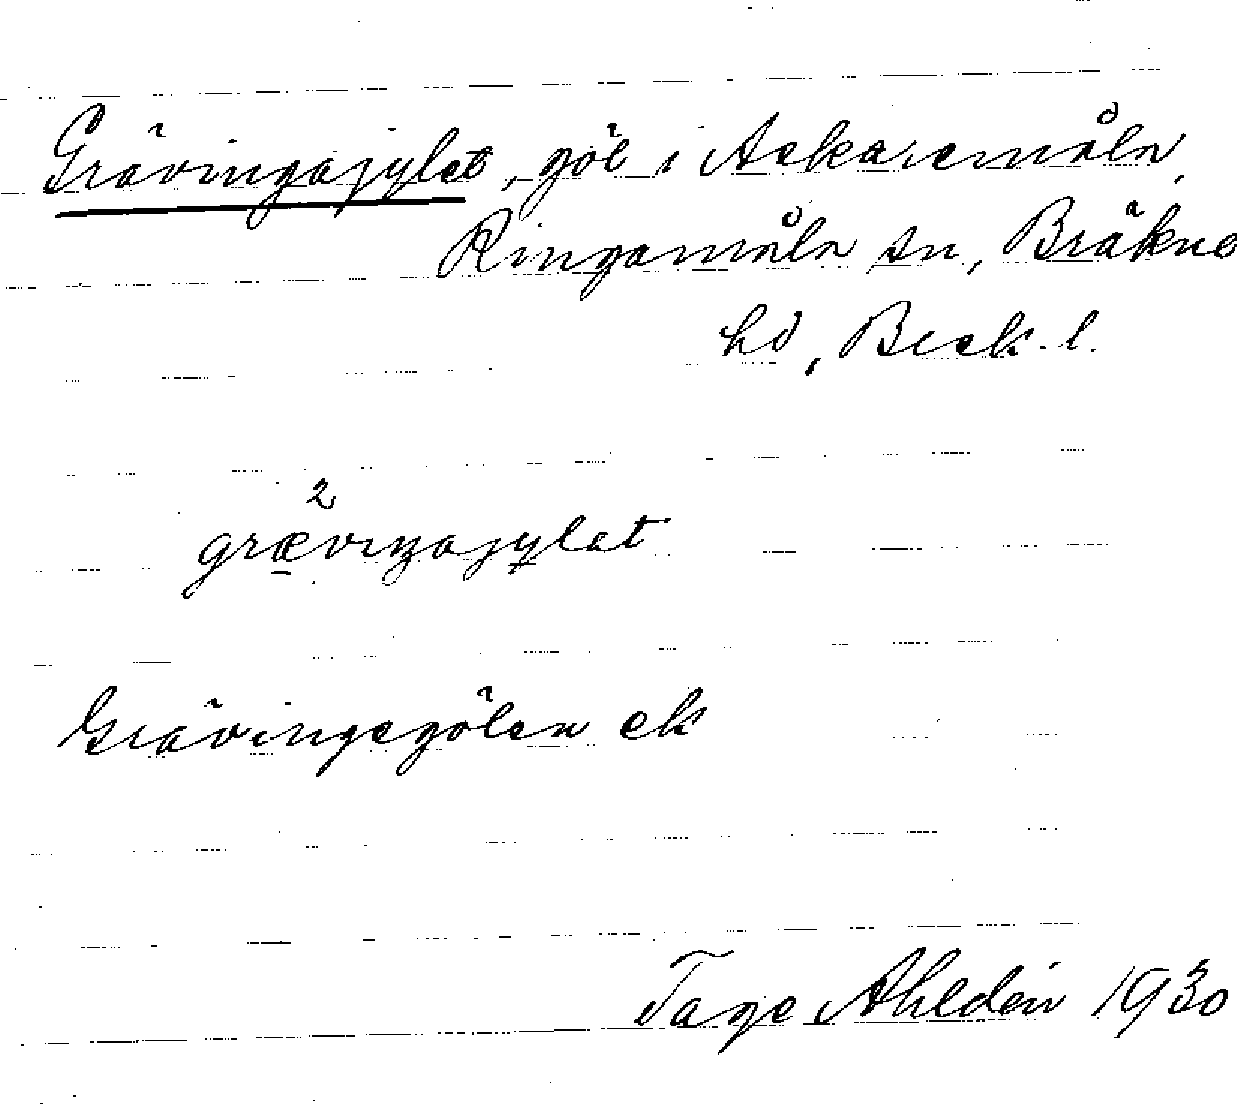 Grävingajylet, göl i Askaremåla,
Ringamåla sn, Bräkne
hd, Bleck. l.
2
grævıŋajylat
Grävingegölen ek
Tage Ahldén 1930